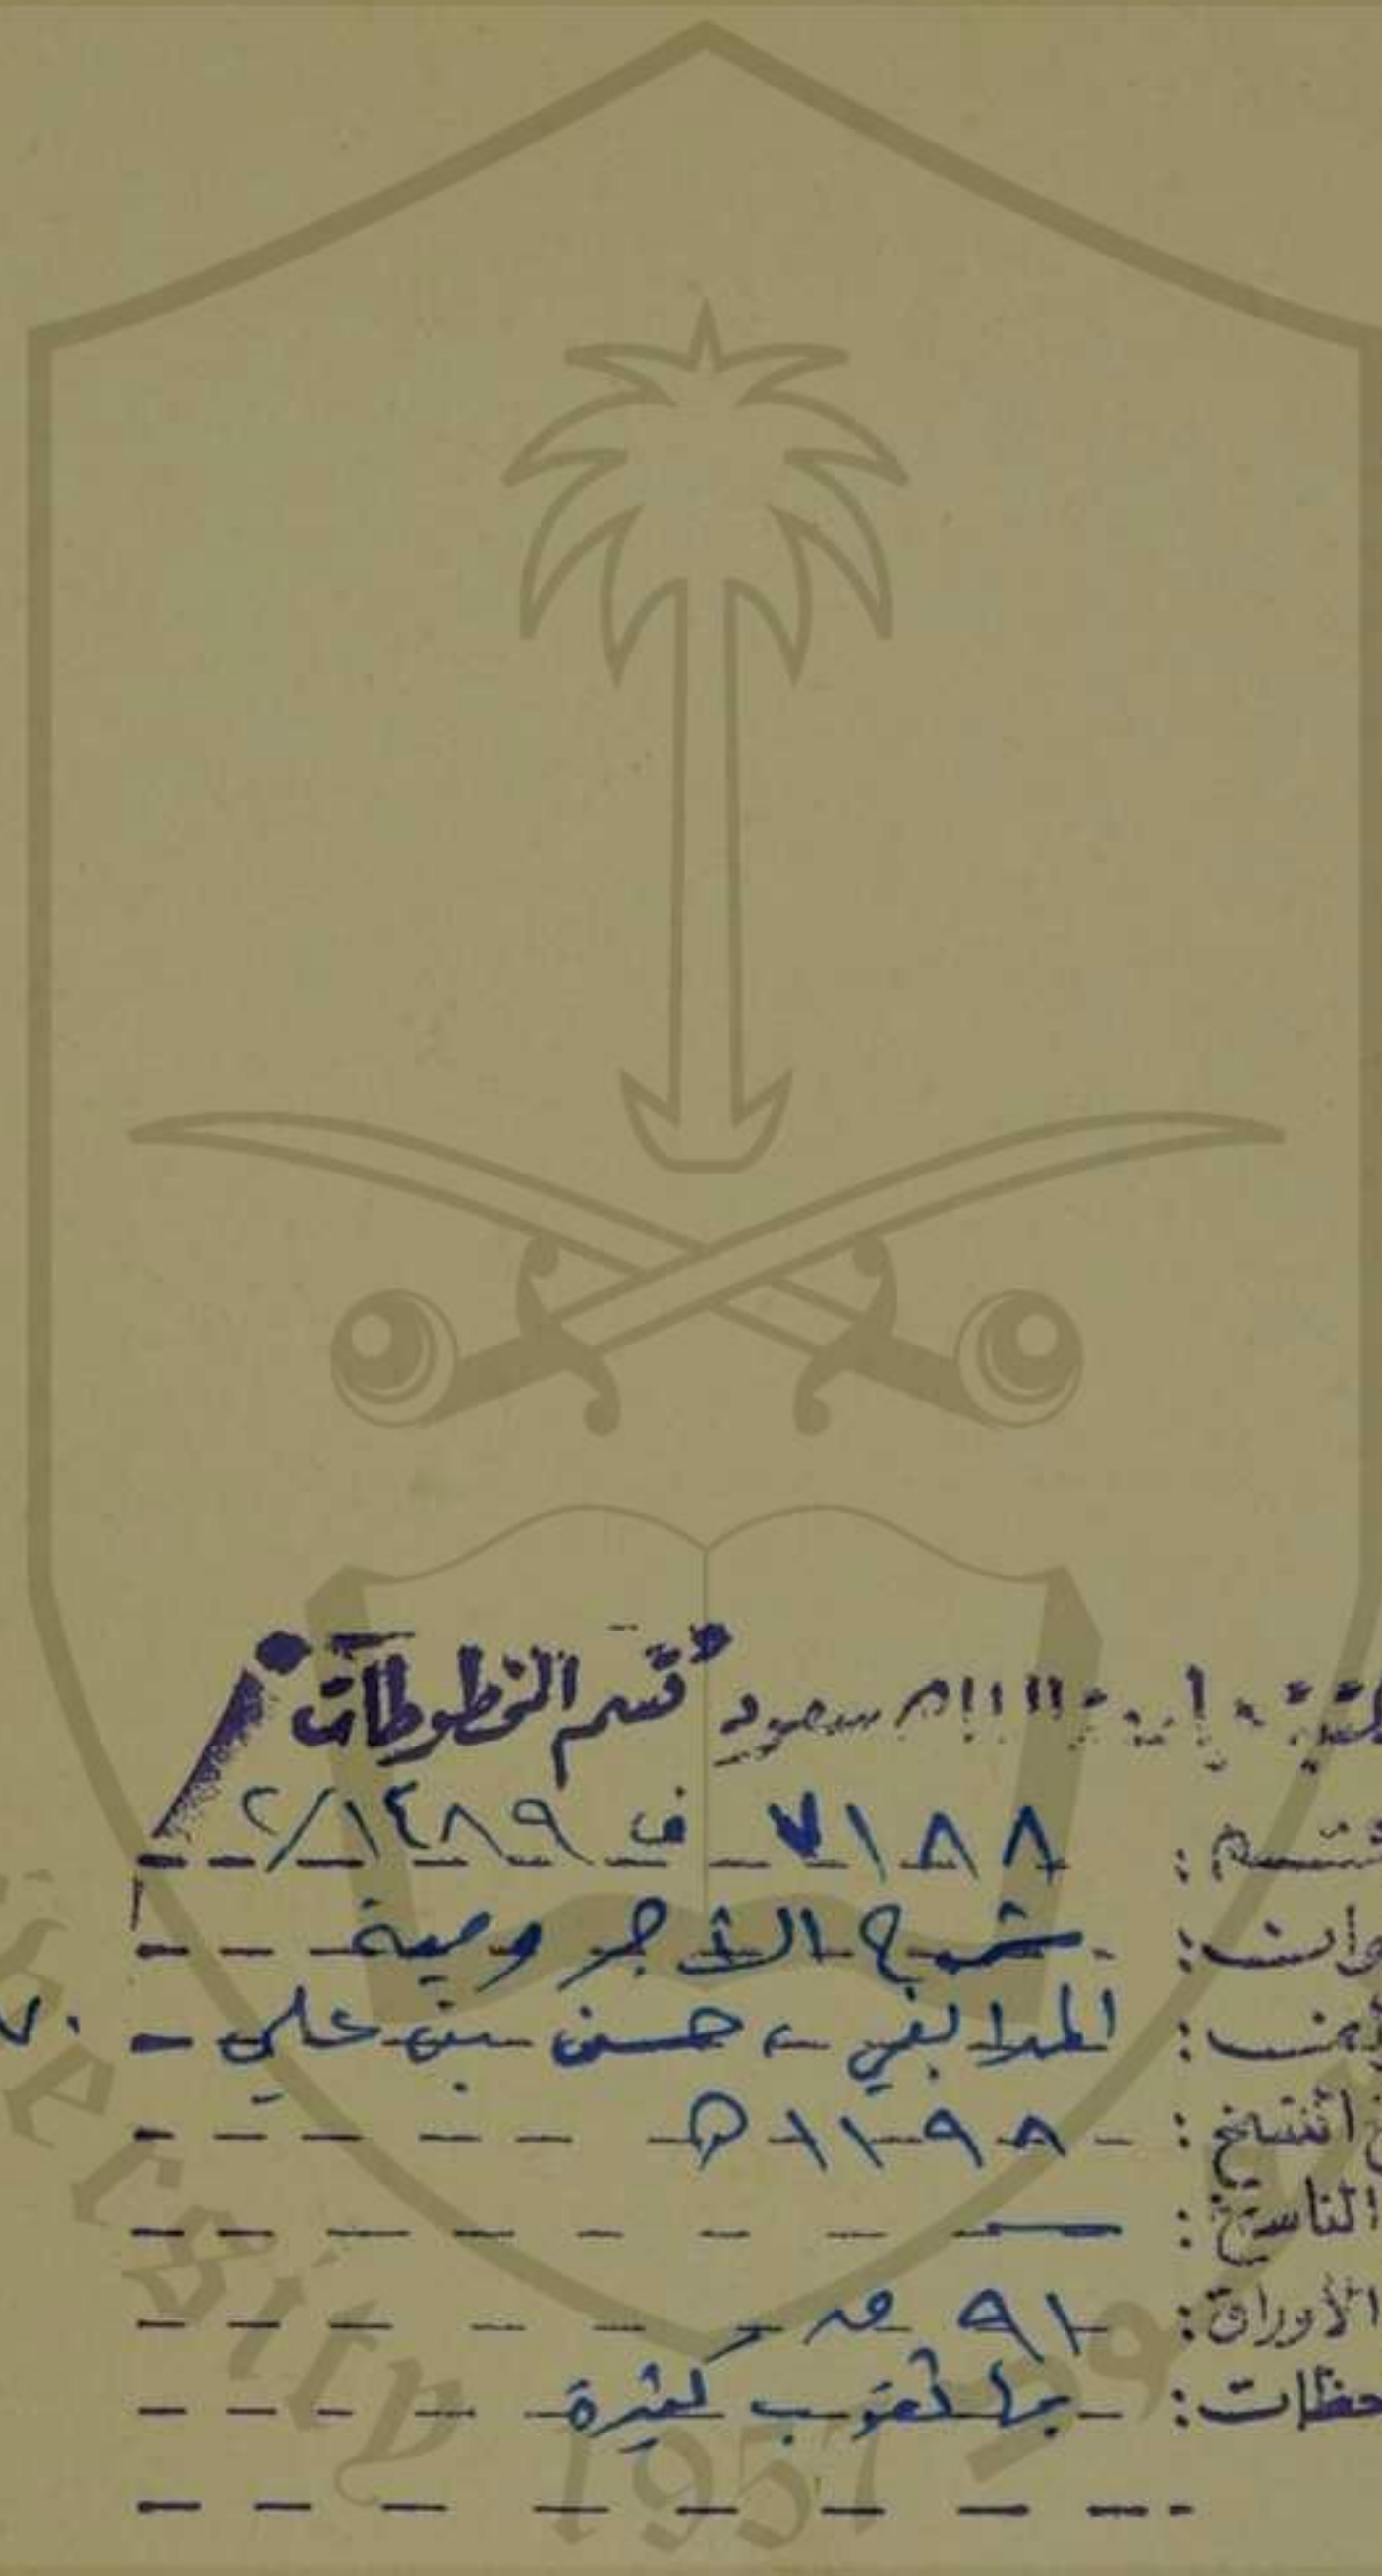 سعود قسم المخطوطات
٧١٨٨ ف ١٤٨٩/٢
شرح الآجرومية
المدابغي، حسن بن علي - ٧٠
اننسخ: ١١٩٨ ه
الناسخ: —
الأوراق: ٩١ ق
حظات: بها ثقوب كثيرة
ersity 1957